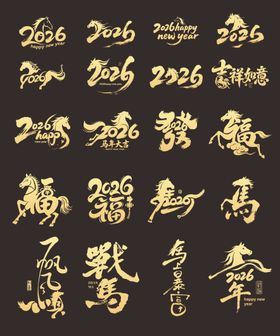 2026
happy new year
2026
2026happy
new year
2026
2026
2026
2026
吉祥如意
2026
happy
2026
馬年大吉
2026
發
福
福
2026
福
2026
馬
一帆風順
戰馬
馬上暴富
2026
年